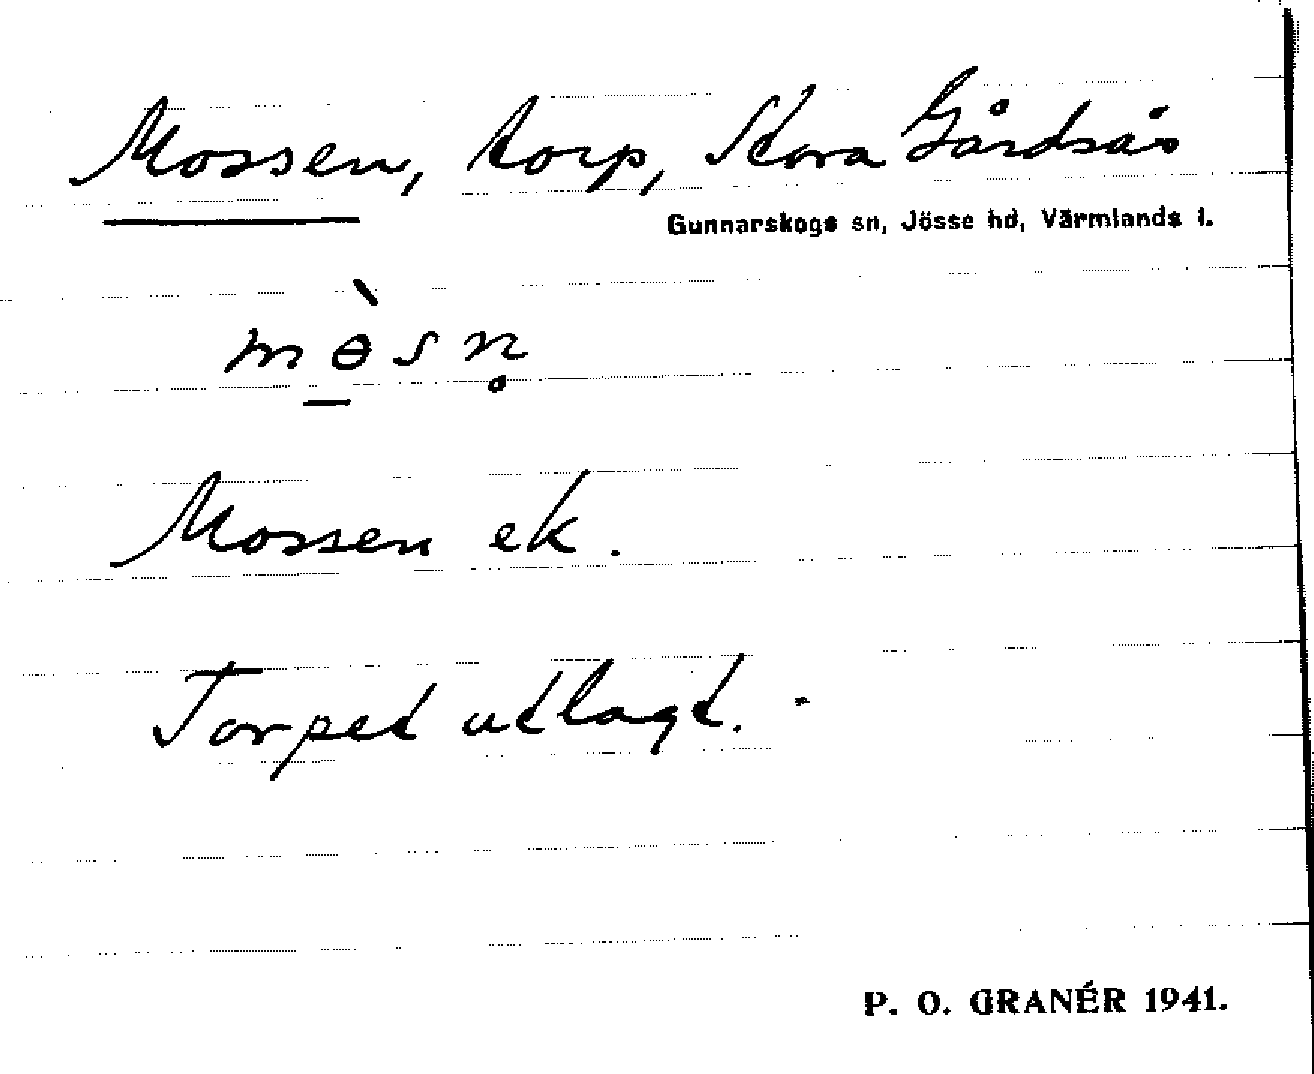 Mossen, torp, Stora Gårdsås
Gunnarskogs sn, Jösse hd, Värmlands l.
mɵ̀sn̥
Mossen ek.
Torpet utlagt. -
P. O. GRANÉR 1941.